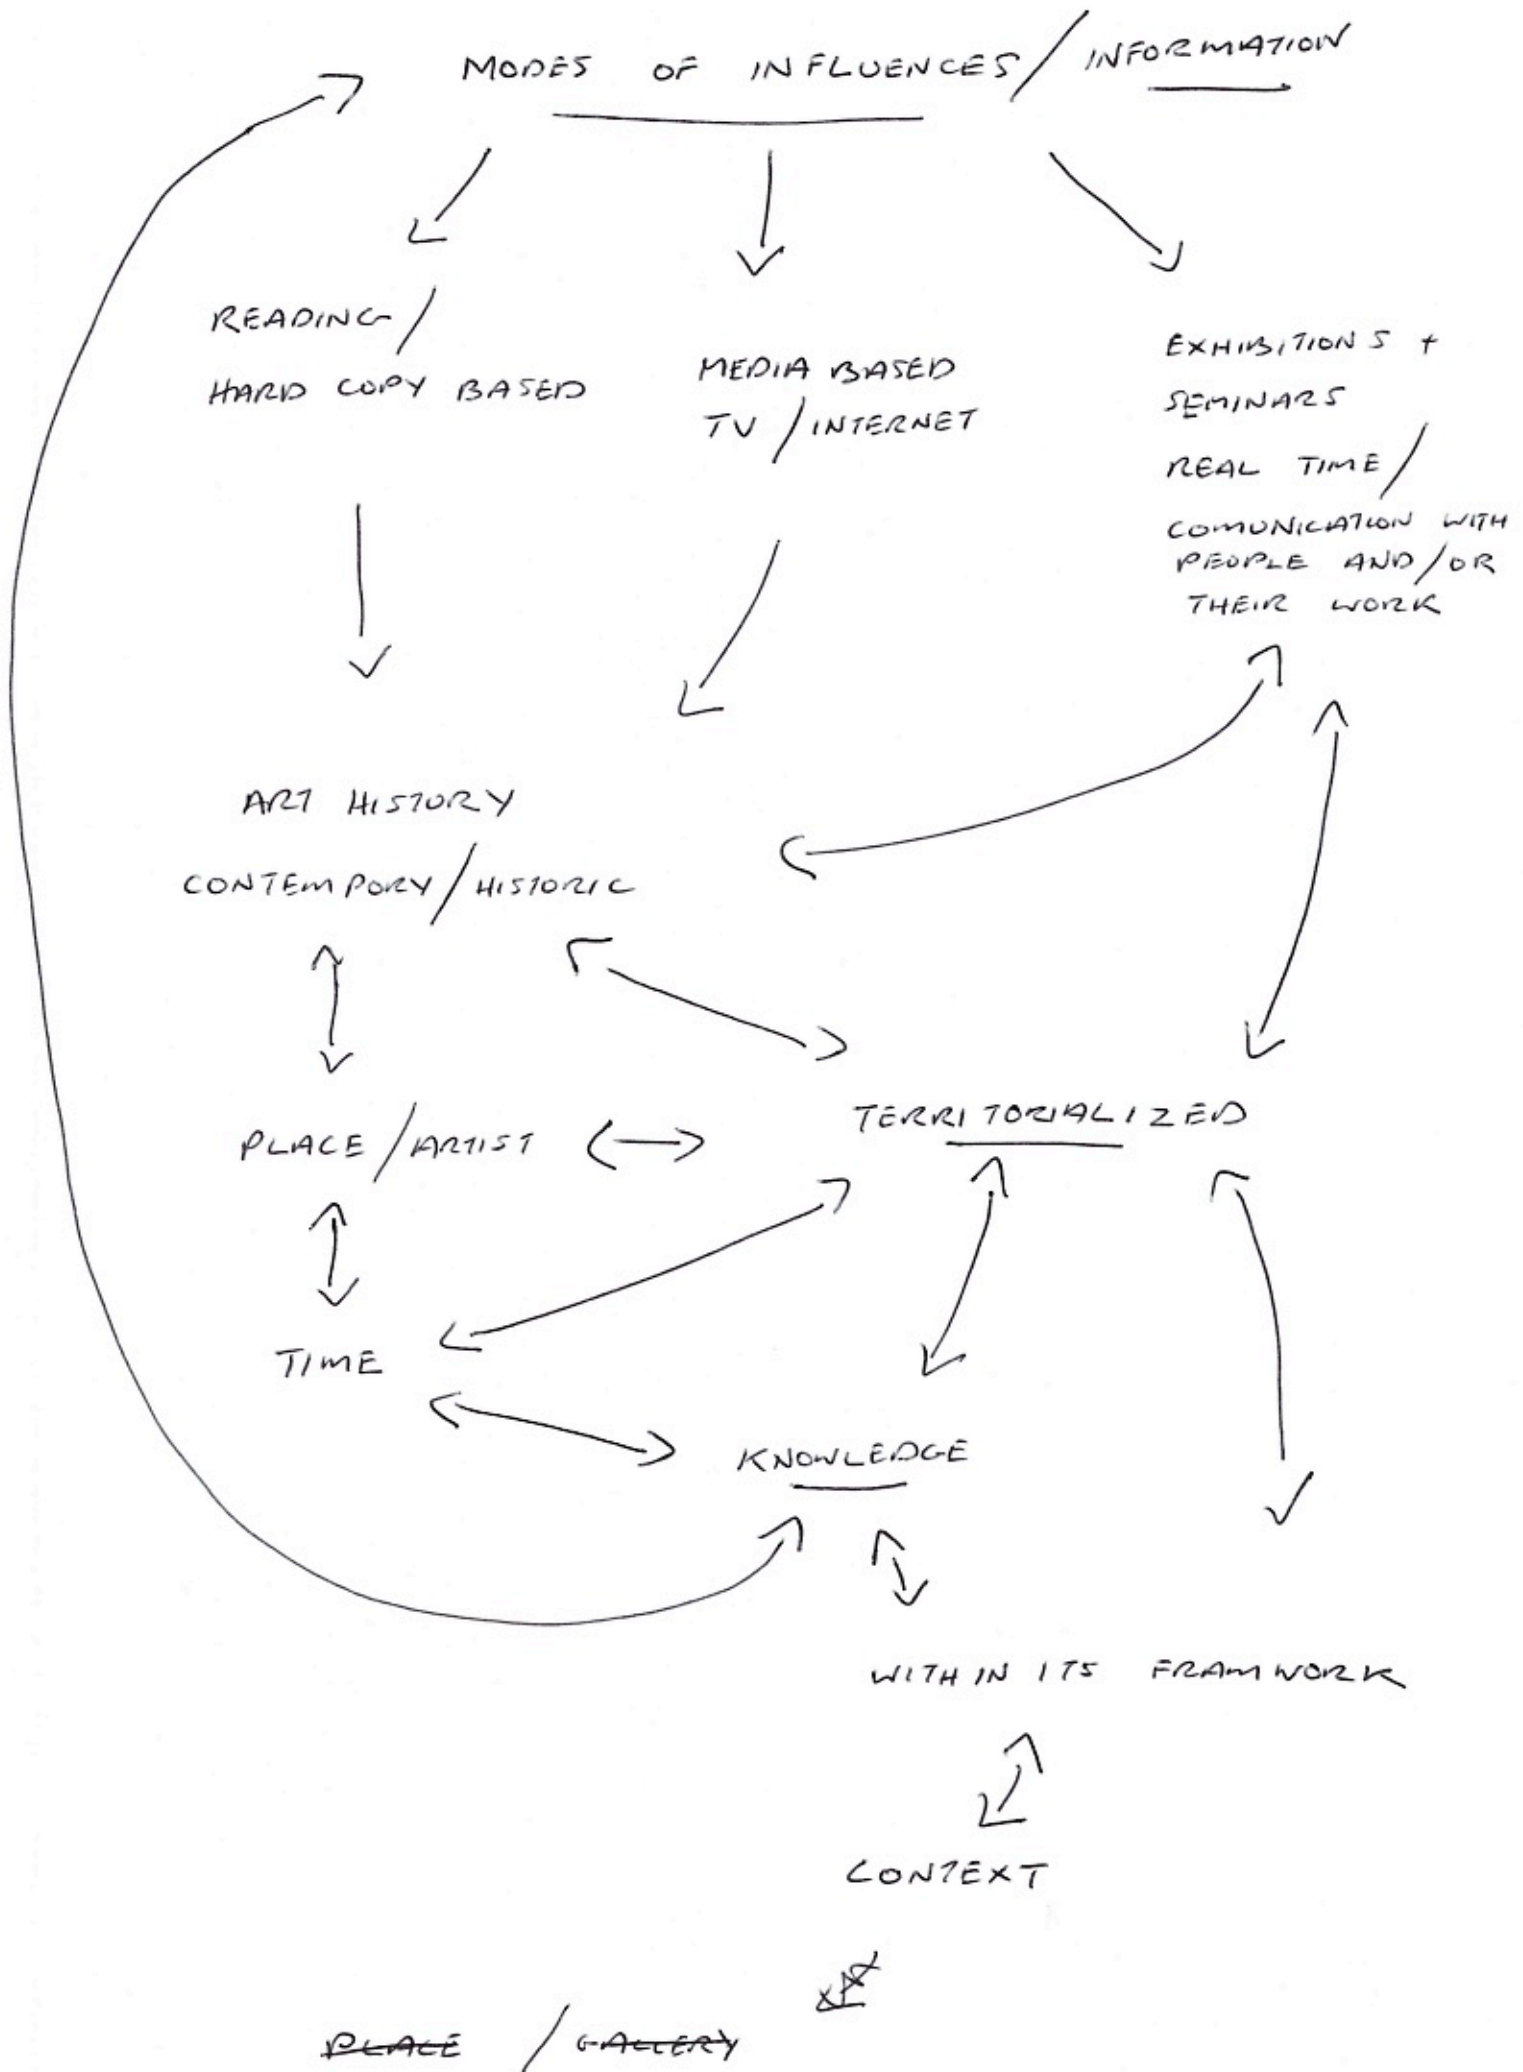 MODES OF INFLUENCES / INFORMATION
READING /
HARD COPY BASED
MEDIA BASED
TV / INTERNET
EXHIBITIONS +
SEMINARS
REAL TIME /
COMUNICATION WITH
PEOPLE AND/OR
THEIR WORK
ART HISTORY
CONTEMPORY / HISTORIC
PLACE / ARTIST
TERRITORIALIZED
TIME
KNOWLEDGE
WITHIN ITS FRAMWORK
CONTEXT
PLACE / GALLERY